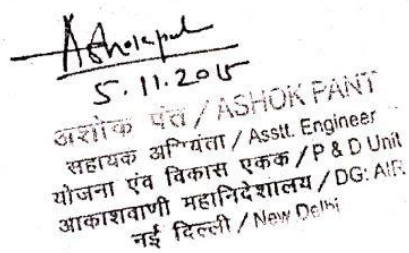 Ashokpant
5.11.2015
अशोक पंत / ASHOK PANT
सहायक अभियंता / Asstt. Engineer
योजना एंव विकास एकक / P & D Unit
आकाशवाणी महानिदेशालय / DG: AIR
नई दिल्ली / New Delhi